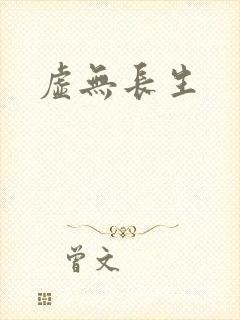 虛無長生
曾文